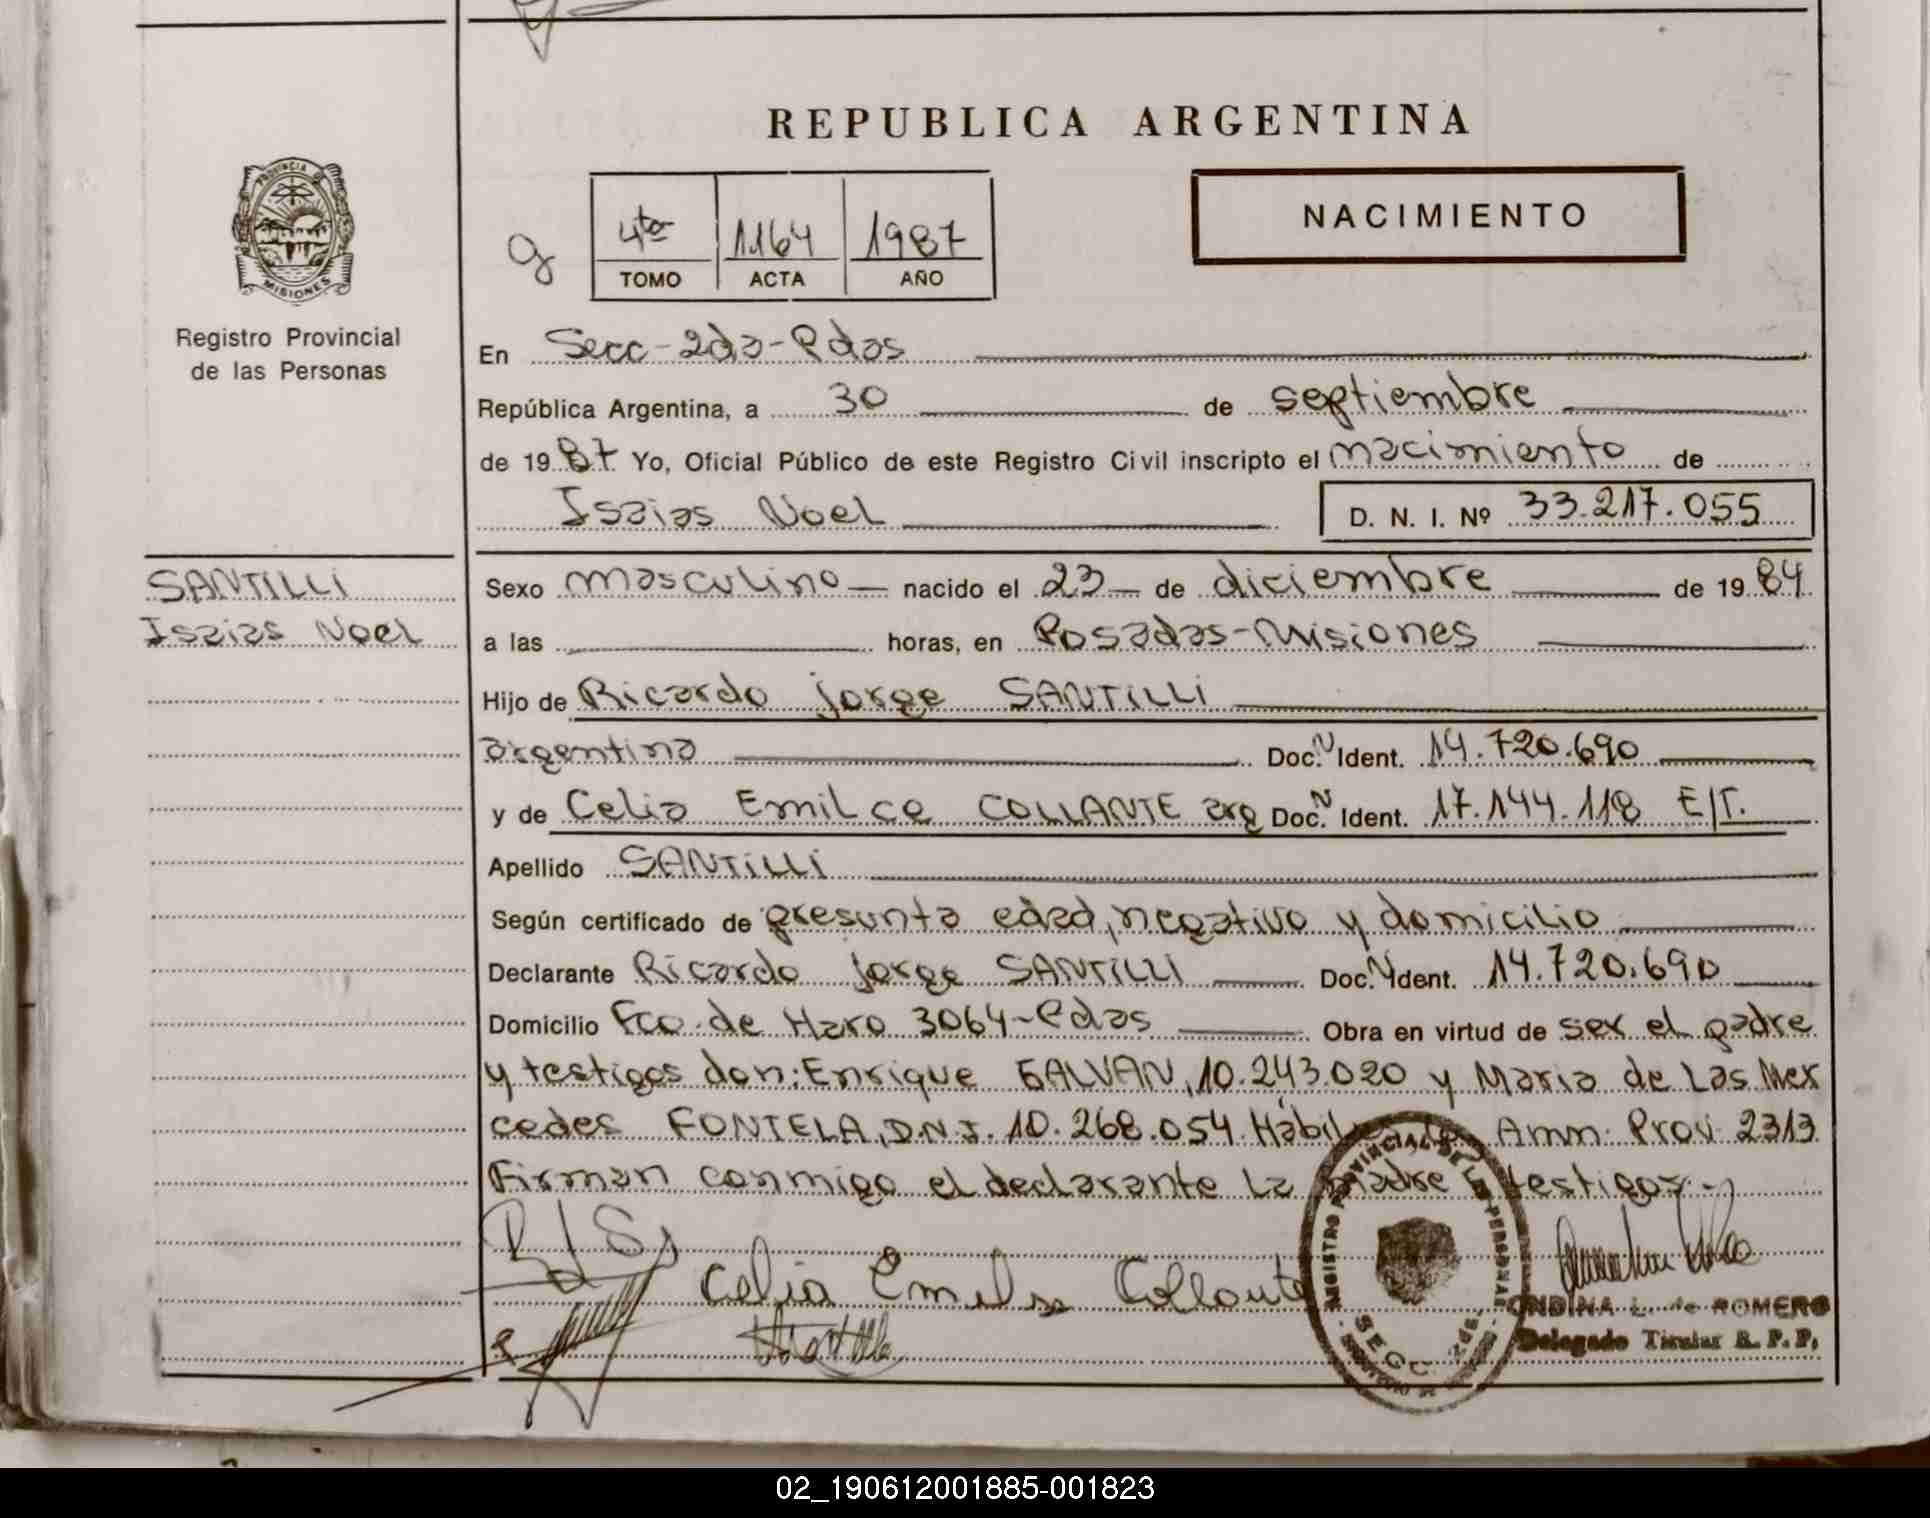 REPUBLICA ARGENTINA
PROVINCIA DE
MISIONES
Registro Provincial
de las Personas
4to 1164 1987
TOMO ACTA AÑO
NACIMIENTO
En Secc-2da-Pdas
República Argentina, a 30 de septiembre
de 1987 Yo, Oficial Público de este Registro Civil inscripto el nacimiento de
Isaias Noel D. N. I. Nº 33.217.055
SANTILLI
Isaias Noel
Sexo masculino nacido el 23 de diciembre de 1984
a las horas, en Posadas-Misiones
Hijo de Ricardo Jorge SANTILLI
argentina Doc. N Ident. 14.720.690
y de Celia Emilce COLLANTE arg Doc. N Ident. 17.144.118 E/T.
Apellido SANTILLI
Según certificado de presunta edad, negativo y domicilio
Declarante Ricardo Jorge SANTILLI Doc. N Ident. 14.720.690
Domicilio Fco. de Haro 3064-Pdas Obra en virtud de ser el padre
y testigos don: Enrique GALVAN, 10.243.020 y Maria de Las Mer
cedes FONTELA, D.N.I. 10.268.054. Amn. Prov. 2313
Firman conmigo el declarante la madre testigos-
RJS
Celia Emilse Collante
REGISTRO PROVINCIAL DE LAS PERSONAS
SECC. 2da.
ONDINA L. de ROMERO
Delegado Titular R. P. P.
02_190612001885-001823